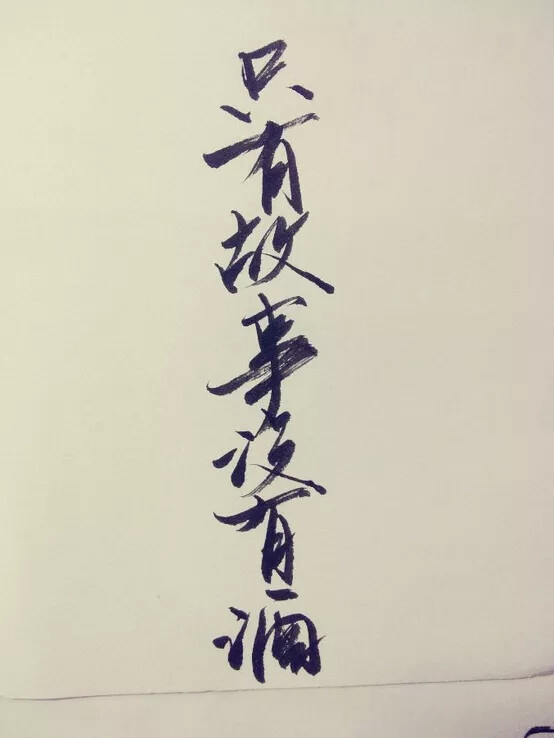 只有故事没有酒